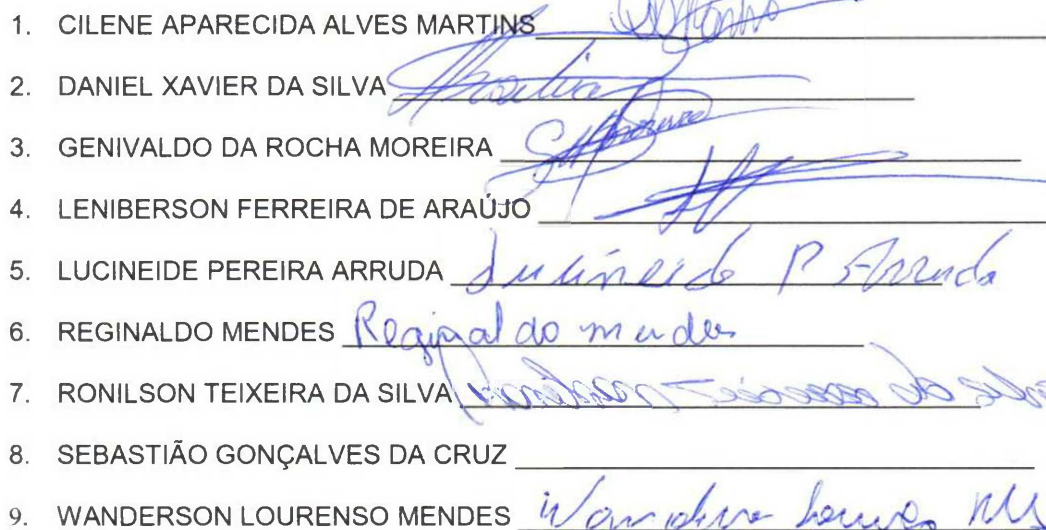 1. CILENE APARECIDA ALVES MARTINS
2. DANIEL XAVIER DA SILVA
3. GENIVALDO DA ROCHA MOREIRA
4. LENIBERSON FERREIRA DE ARAÚJO
5. LUCINEIDE PEREIRA ARRUDA Lucineide P Arruda
6. REGINALDO MENDES Reginaldo mendes
7. RONILSON TEIXEIRA DA SILVA
8. SEBASTIÃO GONÇALVES DA CRUZ
9. WANDERSON LOURENSO MENDES